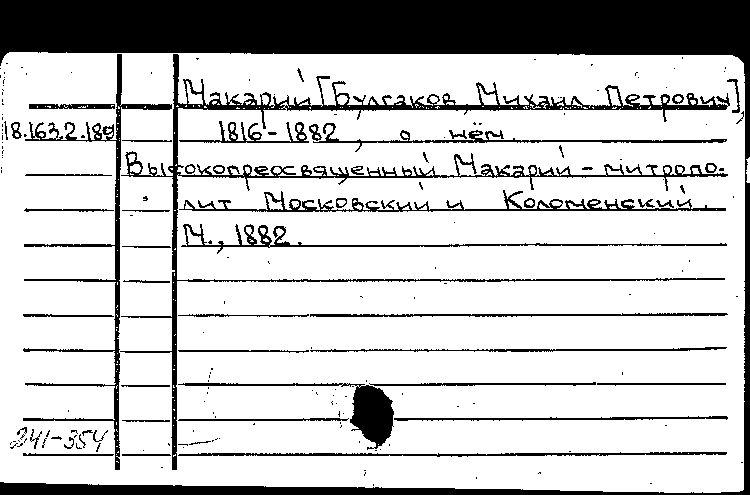 Макарий [Булгаков, Михаил Петрович],
1816-1882, о нём.
Высокопреосвященный Макарий - митропо-
лит Московский и Коломенский.
М., 1882.
18.163.2.189
241-354